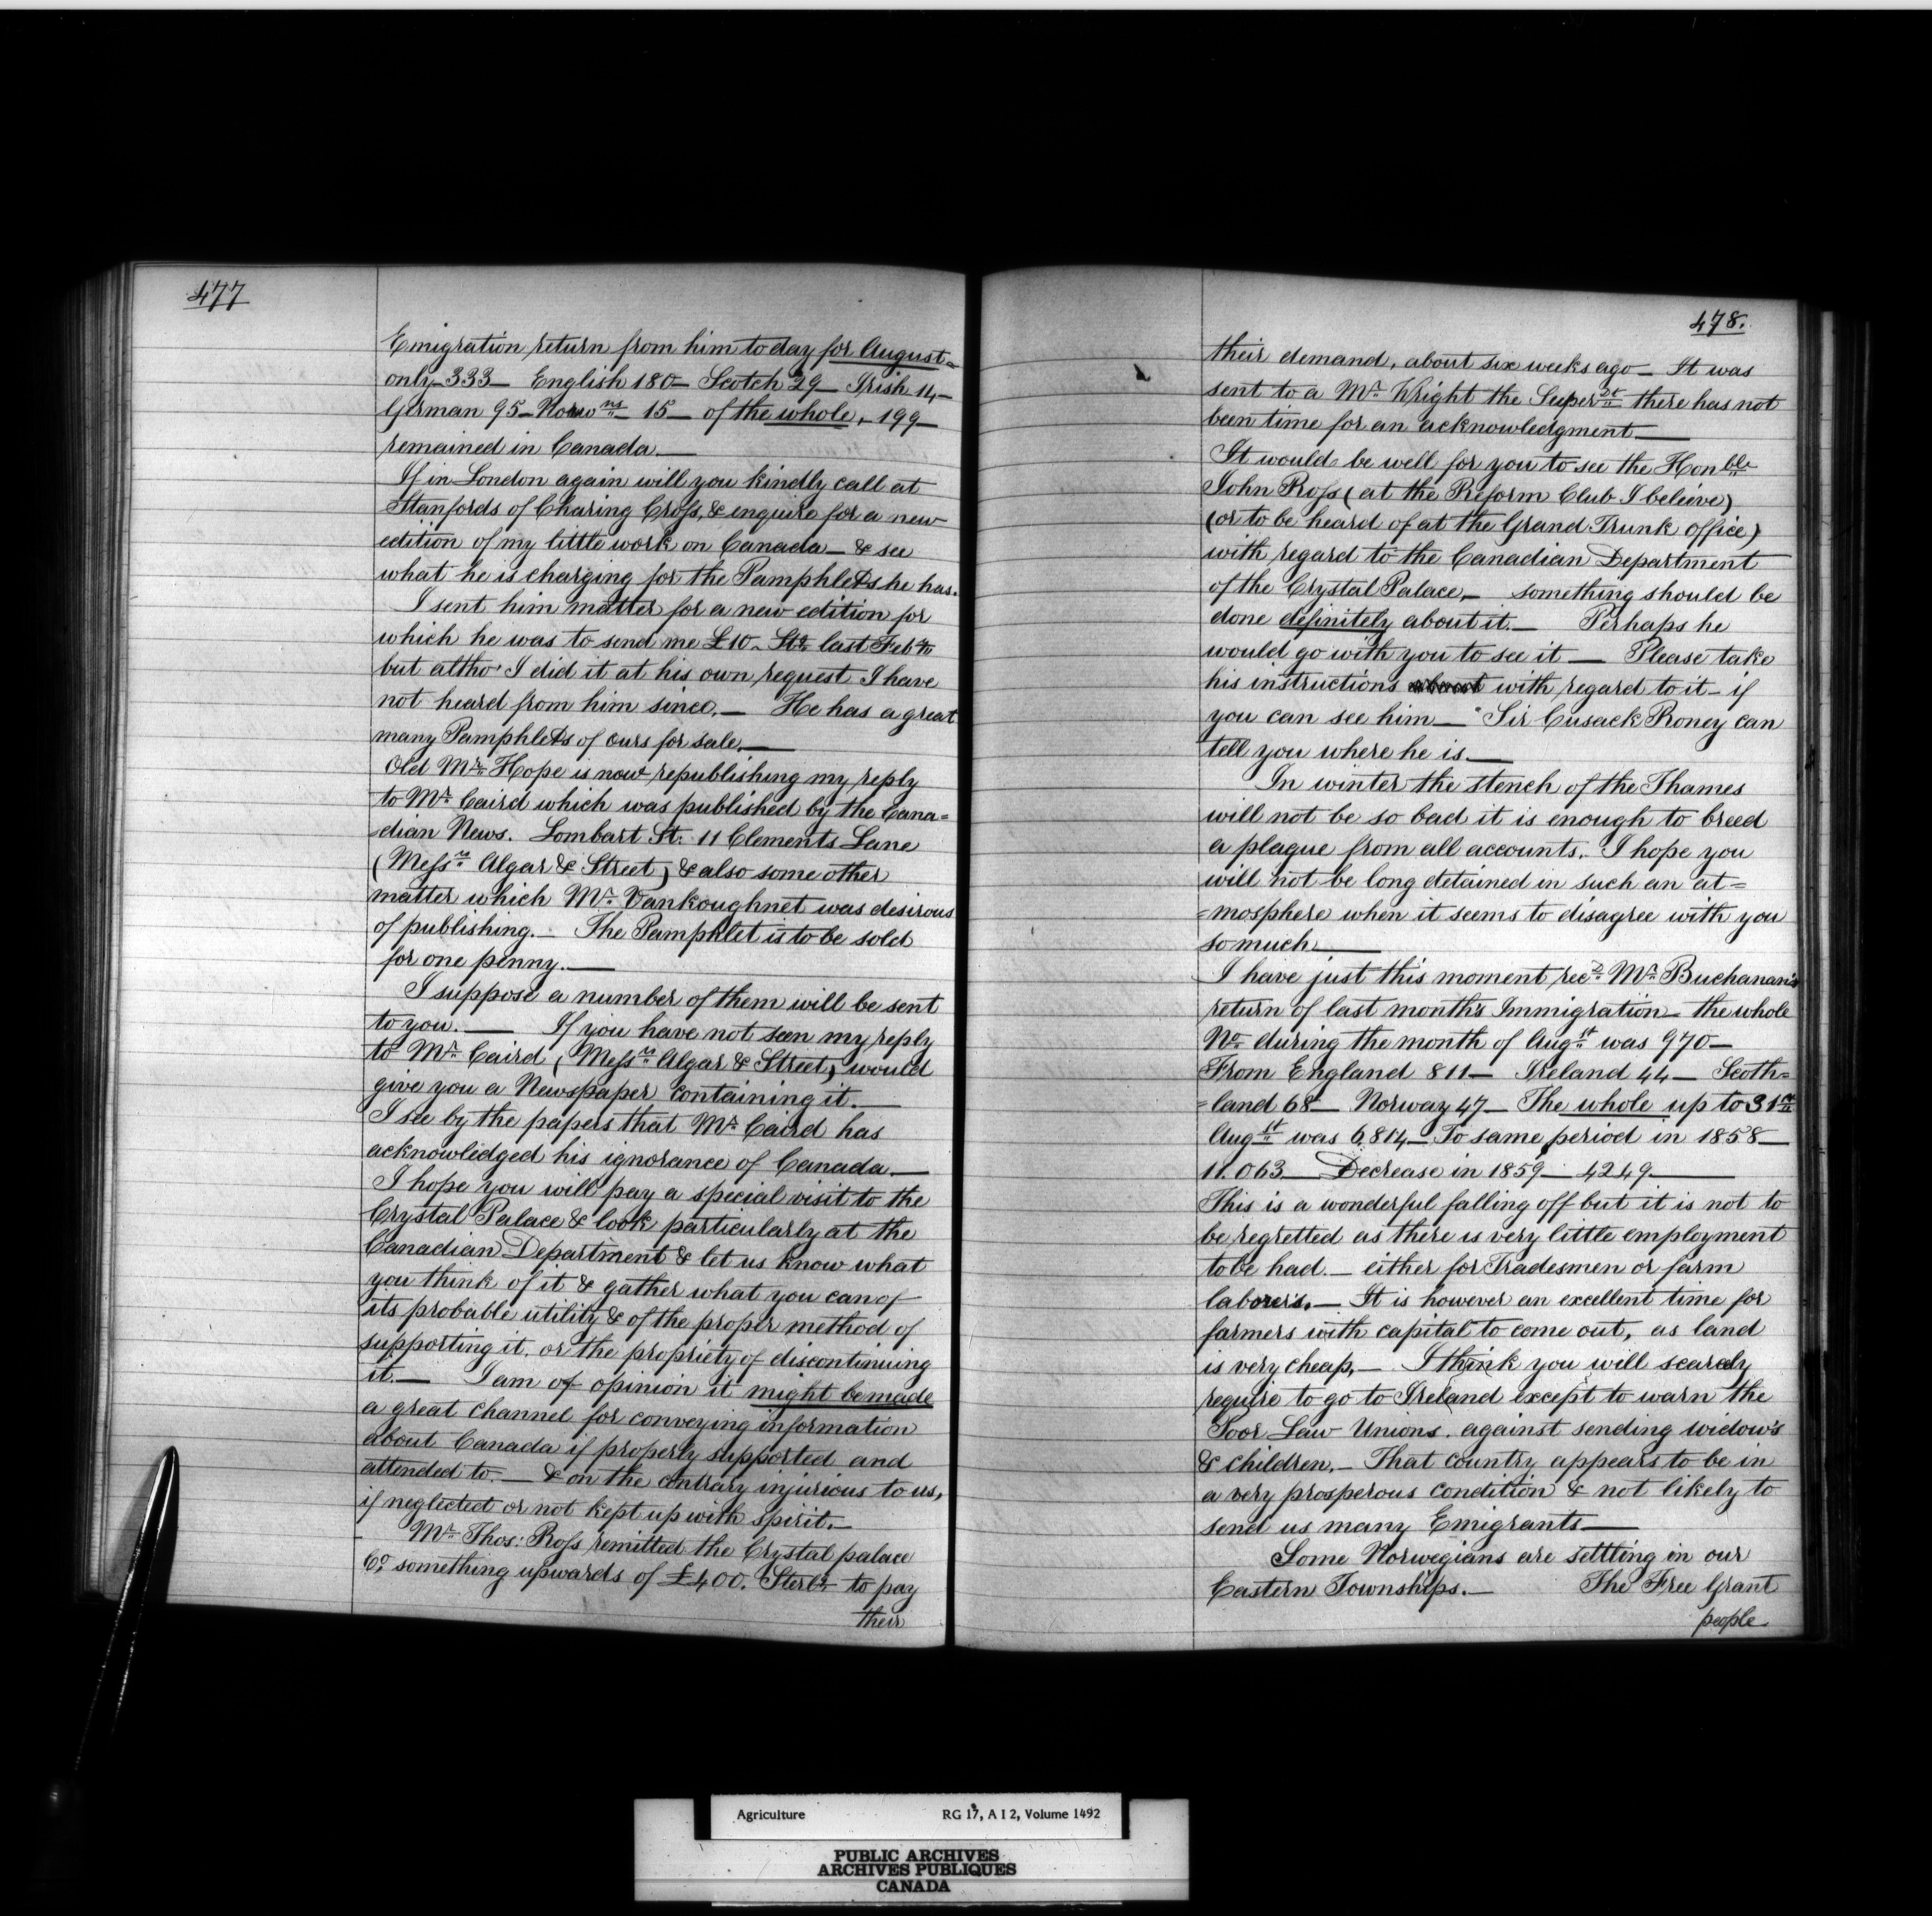 477
Emigration return from him to day for August=
only 333— English 180— Scotch 29— Irish 14—
German 95— Norwns 15— of the whole, 199—
remained in Canada.—
If in London again will you kindly call at
Stanfords of Charing Cross, & enquire for a new
edition of my little work on Canada— & see
what he is charging for the Pamphlets he has.
I sent him matter for a new edition for
which he was to send me £10. Stg last Feby
but altho' I did it at his own request I have
not heard from him since.— He has a great
many Pamphlets of ours for sale.—
Old Mr Hope is now republishing my reply
to Mr Caird which was published by the Cana=
=dian News. Lombart St: 11 Clements Lane
(Messrs Algar & Street) & also some other
matter which Mr Vankoughnet was desirous
of publishing.— The Pamphlet is to be sold
for one penny.—
I suppose a number of them will be sent
to you.— If you have not seen my reply
to Mr Caird (Messrs Algar & Street) would
give you a Newspaper containing it.—
I see by the papers that Mr Caird has
acknowledged his ignorance of Canada.—
I hope you will pay a special visit to the
Crystal Palace & look particularly at the
Canadian Department & let us know what
you think of it & gather what you can of
its probable utility & of the proper method of
supporting it. or the propriety of discontinuing
it.— I am of opinion it might be made
a great channel for conveying information
about Canada if properly supported and
attended to.— & on the contrary injurious to us,
if neglected or not kept up with spirit.—
Mr Thos: Ross remitted the Crystal palace
Co. something upwards of £400. Sterlg to pay
their
478.
their demand, about six weeks ago— It was
sent to a Mr Wright the SuperDt there has not
been time for an acknowledgment—
It would be well for you to see the Honble
John Ross (at the Reform Club I believe)
(or to be heard of at the Grand Trunk office)
with regard to the Canadian Department
of the Crystal Palace,— something should be
done definitely about it.— Perhaps he
would go with you to see it— Please take
his instructions about with regard to it— if
you can see him— Sir Cusack Roney can
tell you where he is.—
In winter the stench of the Thames
will not be so bad it is enough to breed
a plague from all accounts. I hope you
will not be long detained in such an at=
=mosphere when it seems to disagree with you
so much.—
I have just this moment recd Mr Buchanan's
return of last month's Immigration— the whole
No during the month of Augst was 970—
From England 811— Ireland 44— Scoth=
=land 68— Norway 47— The whole up to 31st
Augst was 6.814— To same period in 1858—
11.063— Decrease in 1859— 4249—
This is a wonderful falling off but it is not to
be regretted as there is very little employment
to be had.— either for Tradesmen or farm
laborers.— It is however an excellent time for
farmers with capital to come out, as land
is very cheap,— I think you will scarcely
require to go to Ireland except to warn the
Poor Law Unions. against sending widow's
& children.— That country appears to be in
a very prosperous condition & not likely to
send us many Emigrants—
Some Norwegians are settling in our
Eastern Townships.— The Free Grant
people
Agriculture RG 17, A I 2, Volume 1492
PUBLIC ARCHIVES
ARCHIVES PUBLIQUES
CANADA